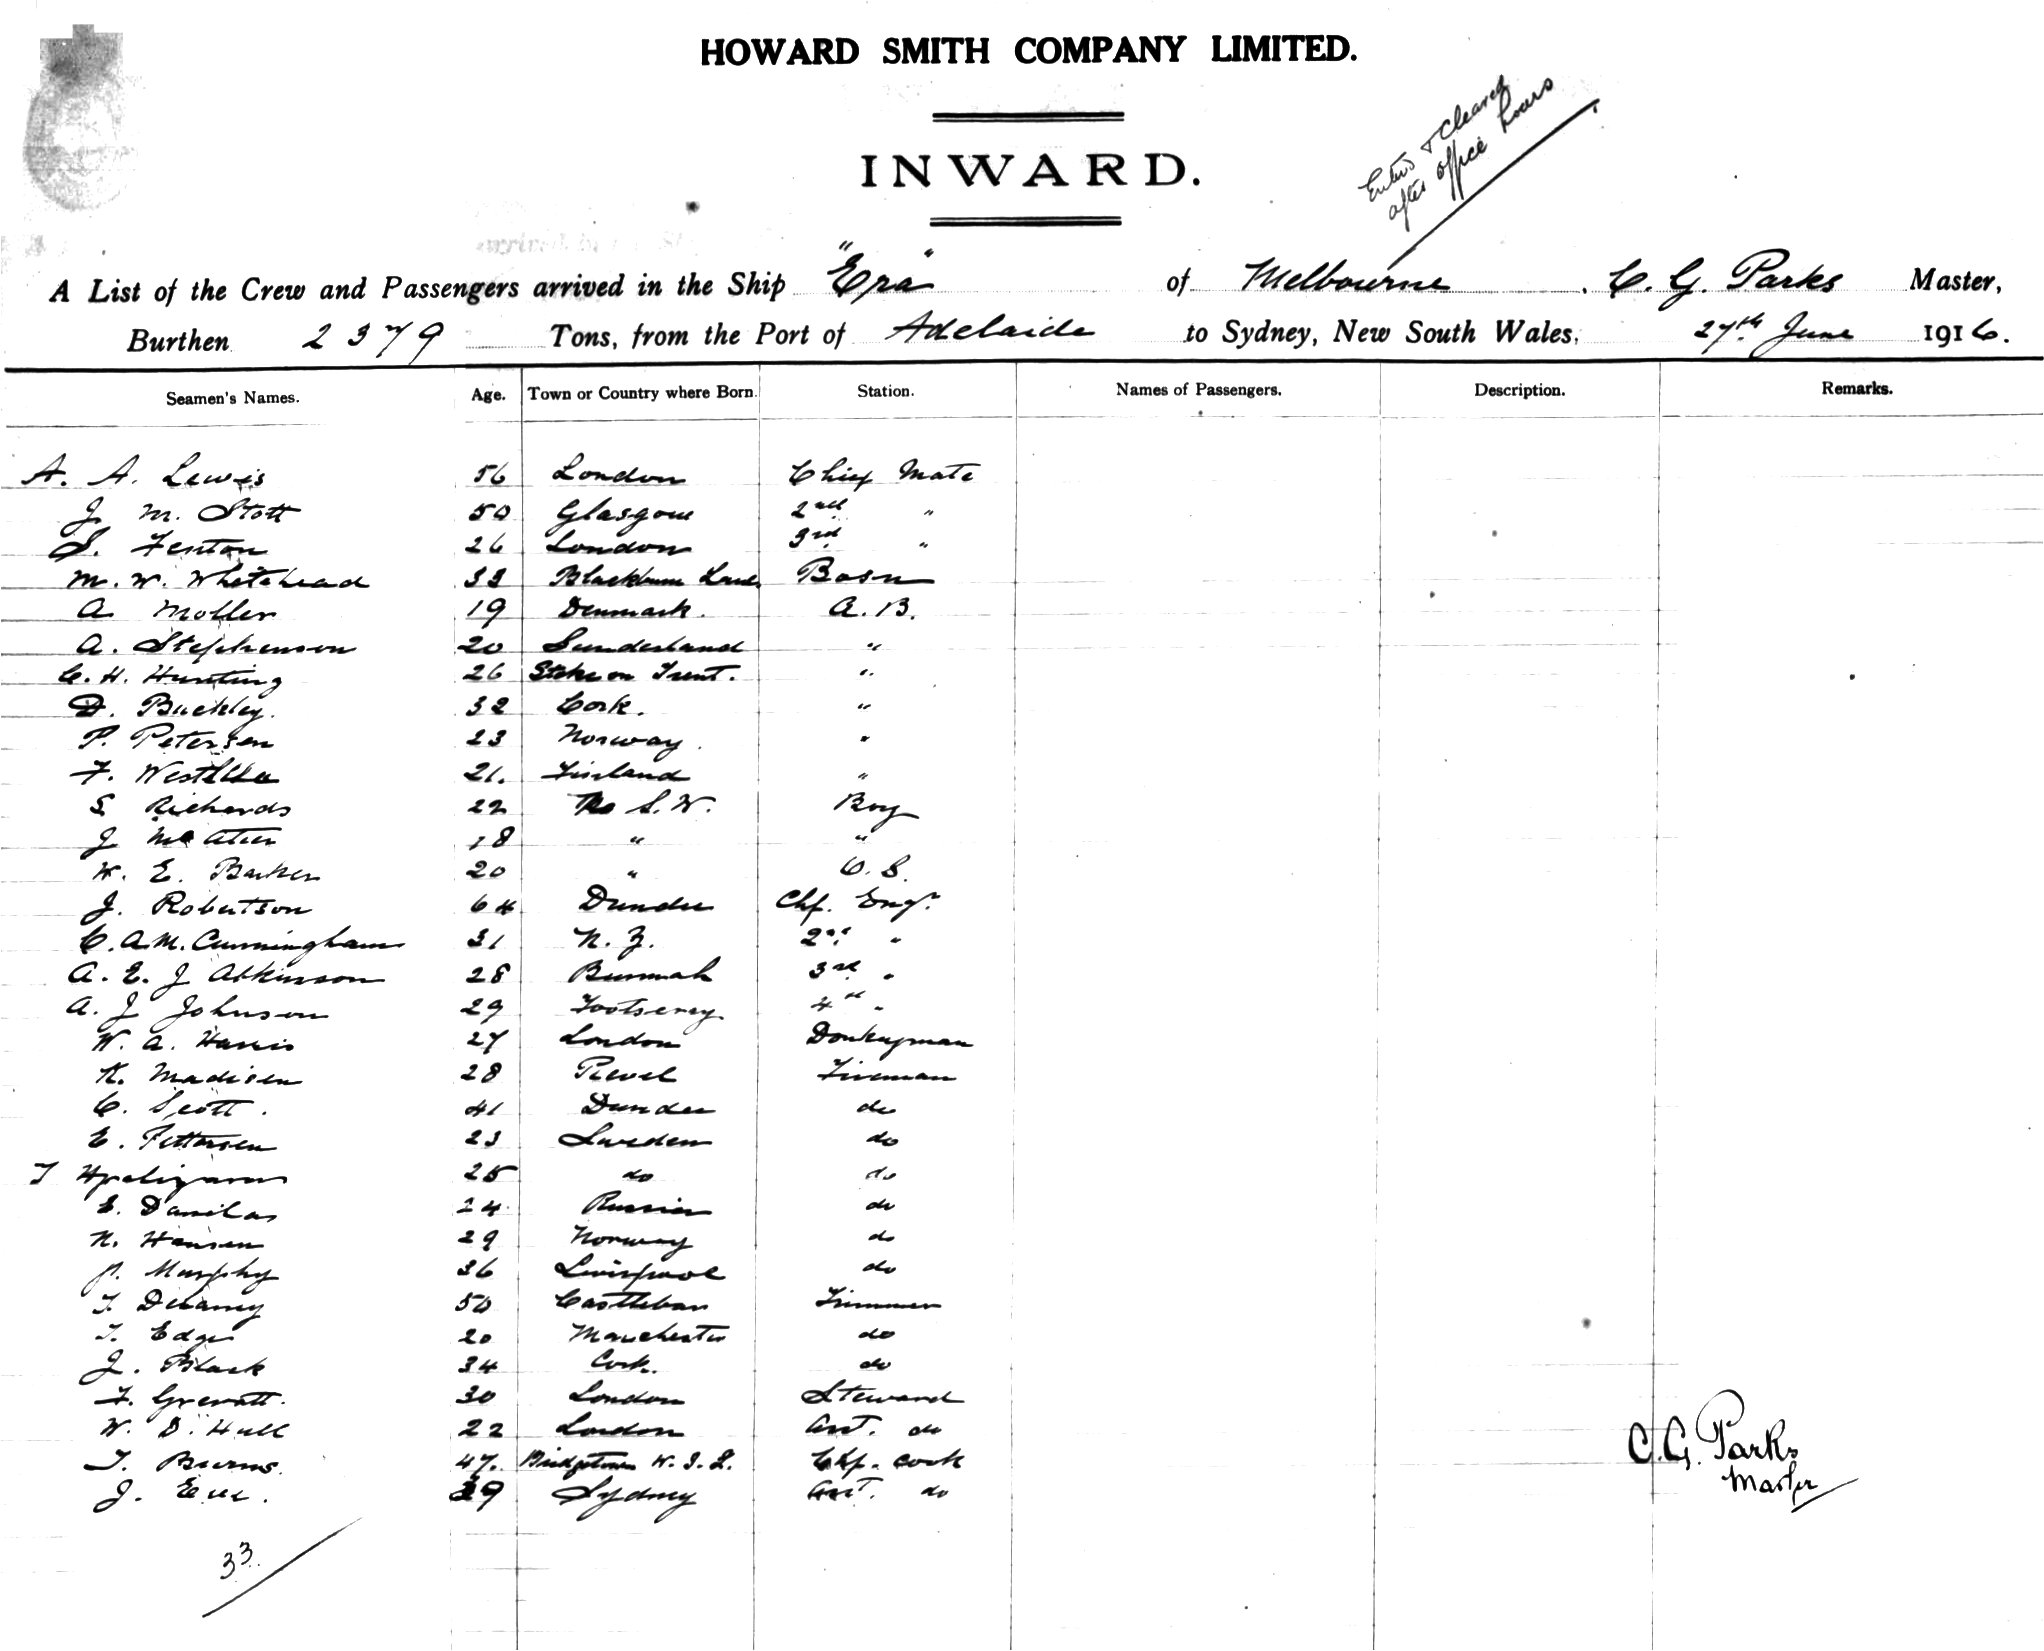 HOWARD SMITH COMPANY LIMITED.
INWARD.
Enters & Cleared
after office hours
A List of the Crew and Passengers arrived in the Ship "Era" of Melbourne . C. G. Parks Master,
Burthen 2379 Tons, from the Port of Adelaide to Sydney, New South Wales, 27th June 1916.
Seamen's Names. Age. Town or Country where Born. Station. Names of Passengers. Description. Remarks.
A. A. Lewis 56 London Chief Mate
J. M. Stott 50 Glasgow 2nd "
S. Fenton 26 London 3rd "
M. W. Whitehead 33 Blackburn Lancs Bosn
A Moller 19 Denmark. A.B.
A. Stephenson 20 Sunderland "
C. H. Hunting 26 Stoke on Trent. "
D. Buckley. 32 Cork. "
P. Petersen 23 Norway. "
F. 21. Finland "
S Richards 22 N. S. W. Boy
J 18 " "
W. E. Barker 20 " O. S.
J. Robertson 64 Dundee Chf. Engr.
C. A. M. Cunningham 31 N. Z. 2nd "
A. E. J Atkinson 28 Burmah 3rd "
A. J Johnson 29 Footscray. 4th "
W. A. Harris 27 London Donkeyman
K. Madisen 28 Revel Fireman
C. Scott. 41 Dundee do
E. Pettersen 23 Sweden do
T 25 do do
E. Danilas 24 Russia do
N. Hansen 29 Norway do
P. Murphy 36 Liverpool do
T. Delaney 50 Castlebar Trimmer
T. Edge 20 Manchester do
J. Black 34 Cork. do
F. Grevatt. 30 London Steward
W. D. Hull 22 London Asst. do
T. Burns. 47. Bridgetown W. I. Chf. cook
J. 39 Sydney Asst. do
C. G. Parks
Master
33